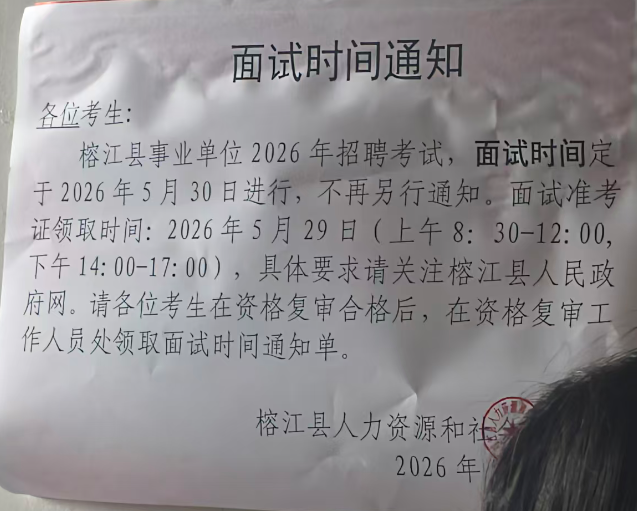 面试时间通知
各位考生：
榕江县事业单位 2026 年招聘考试，面试时间定
于 2026 年 5 月 30 日进行，不再另行通知。面试准考
证领取时间：2026 年 5 月 29 日（上午 8：30-12:00,
下午 14:00-17:00），具体要求请关注榕江县人民政
府网。请各位考生在资格复审合格后，在资格复审工
作人员处领取面试时间通知单。
榕江县人力资源和社会
2026 年